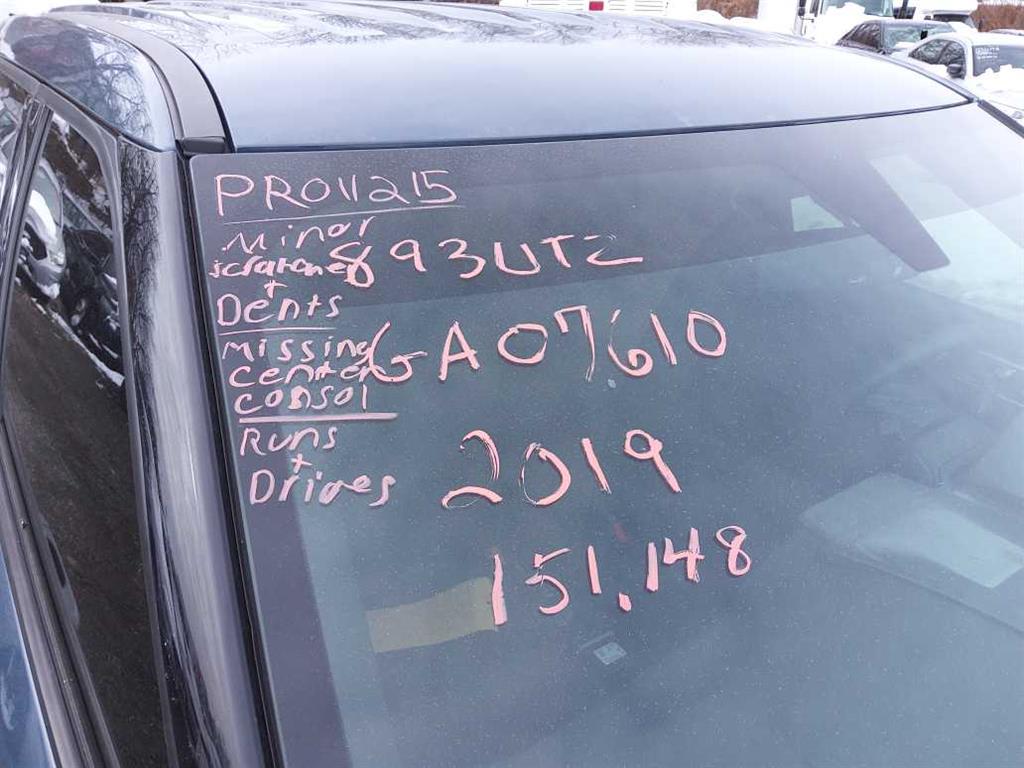 PRO11215
Minor
scratches
+
Dents
893UTZ
Missing
center
consol
GA07610
Runs
+
Drives
2019
151,148